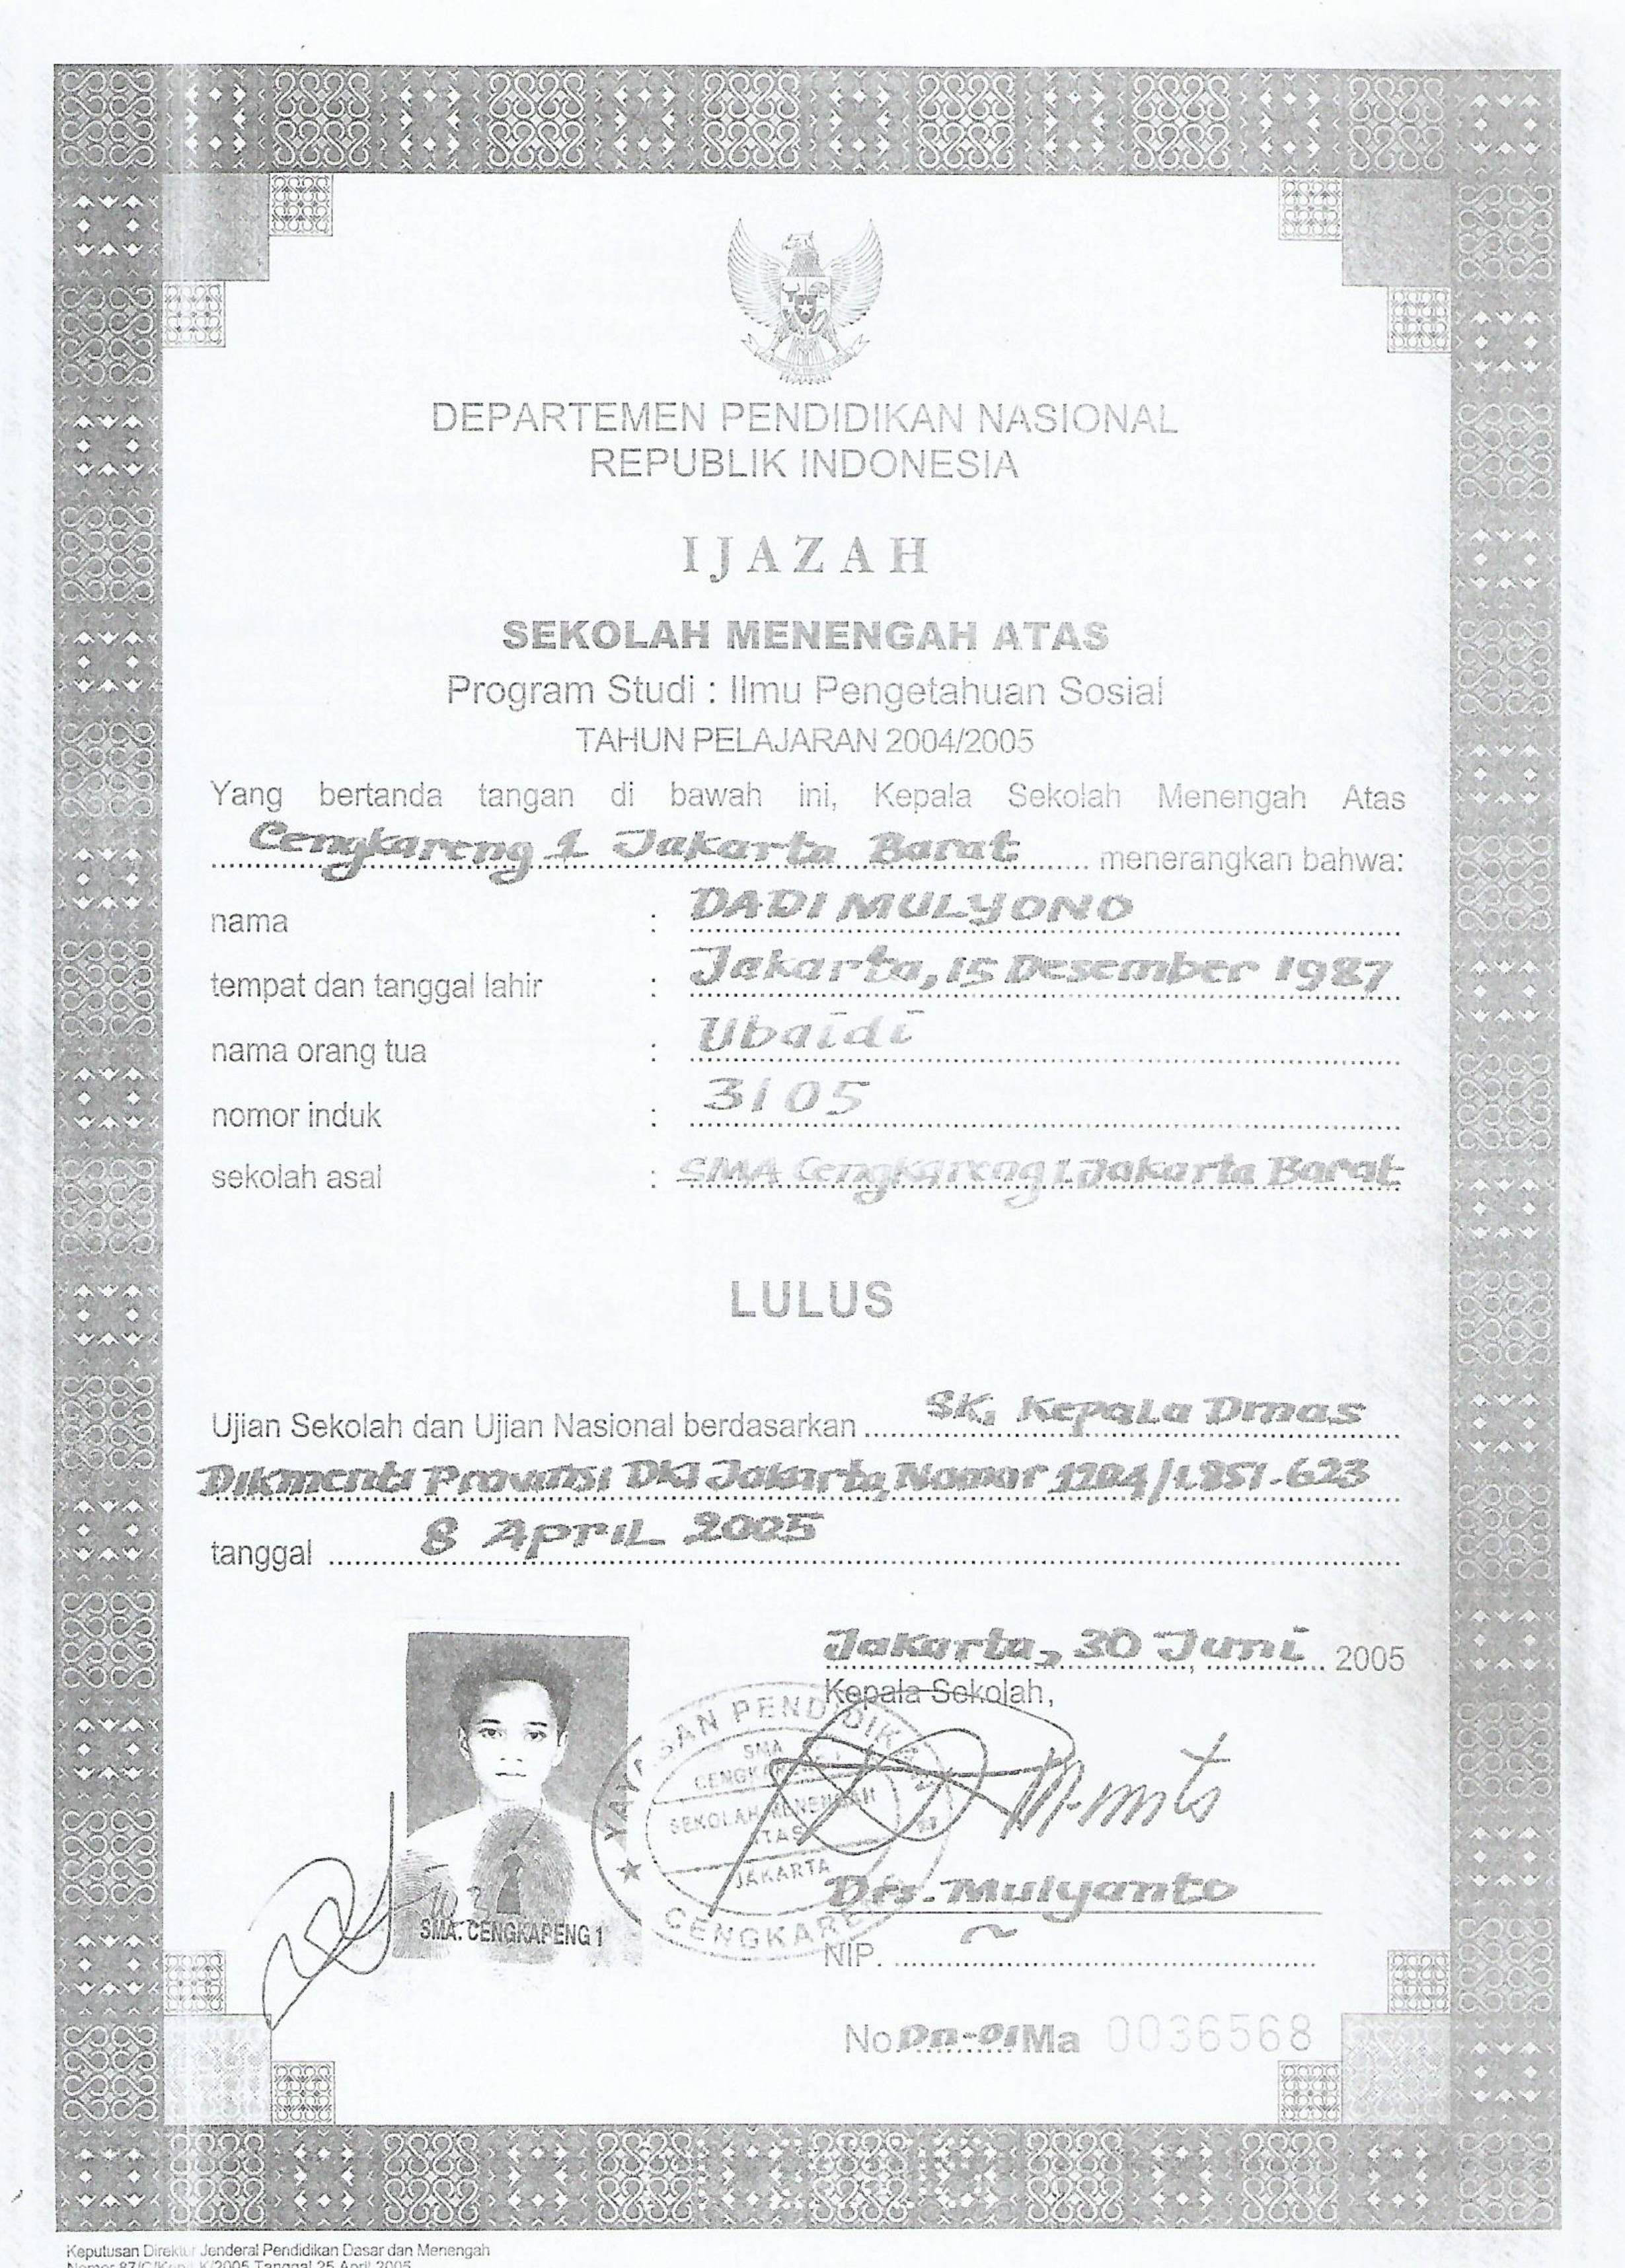 DEPARTEMEN PENDIDIKAN NASIONAL
REPUBLIK INDONESIA
IJAZAH
SEKOLAH MENENGAH ATAS
Program Studi : Ilmu Pengetahuan Sosial
TAHUN PELAJARAN 2004/2005
Yang bertanda tangan di bawah ini, Kepala Sekolah Menengah Atas
Cengkareng 1 Jakarta Barat menerangkan bahwa:
nama : DADI MULYONO
tempat dan tanggal lahir : Jakarta, 15 Desember 1987
nama orang tua : Ubaidi
nomor induk : 3105
sekolah asal : SMA Cengkareng 1 Jakarta Barat
LULUS
Ujian Sekolah dan Ujian Nasional berdasarkan SK. Kepala Dinas
Dikmenti Provinsi DKI Jakarta, Nomor 1204/1.851.623
tanggal 8 April 2005
Jakarta, 30 Juni 2005
Kepala Sekolah,
YAYASAN PENDIDIKAN
SMA
CENGKARENG 1
SEKOLAH MENENGAH
ATAS
JAKARTA
CENGKARENG
SMA. CENGKARENG 1
Drs. Mulyanto
NIP. ~
No. Dn-01 Ma 0036568
Keputusan Direktur Jenderal Pendidikan Dasar dan Menengah
Tanggal 25 April 2005